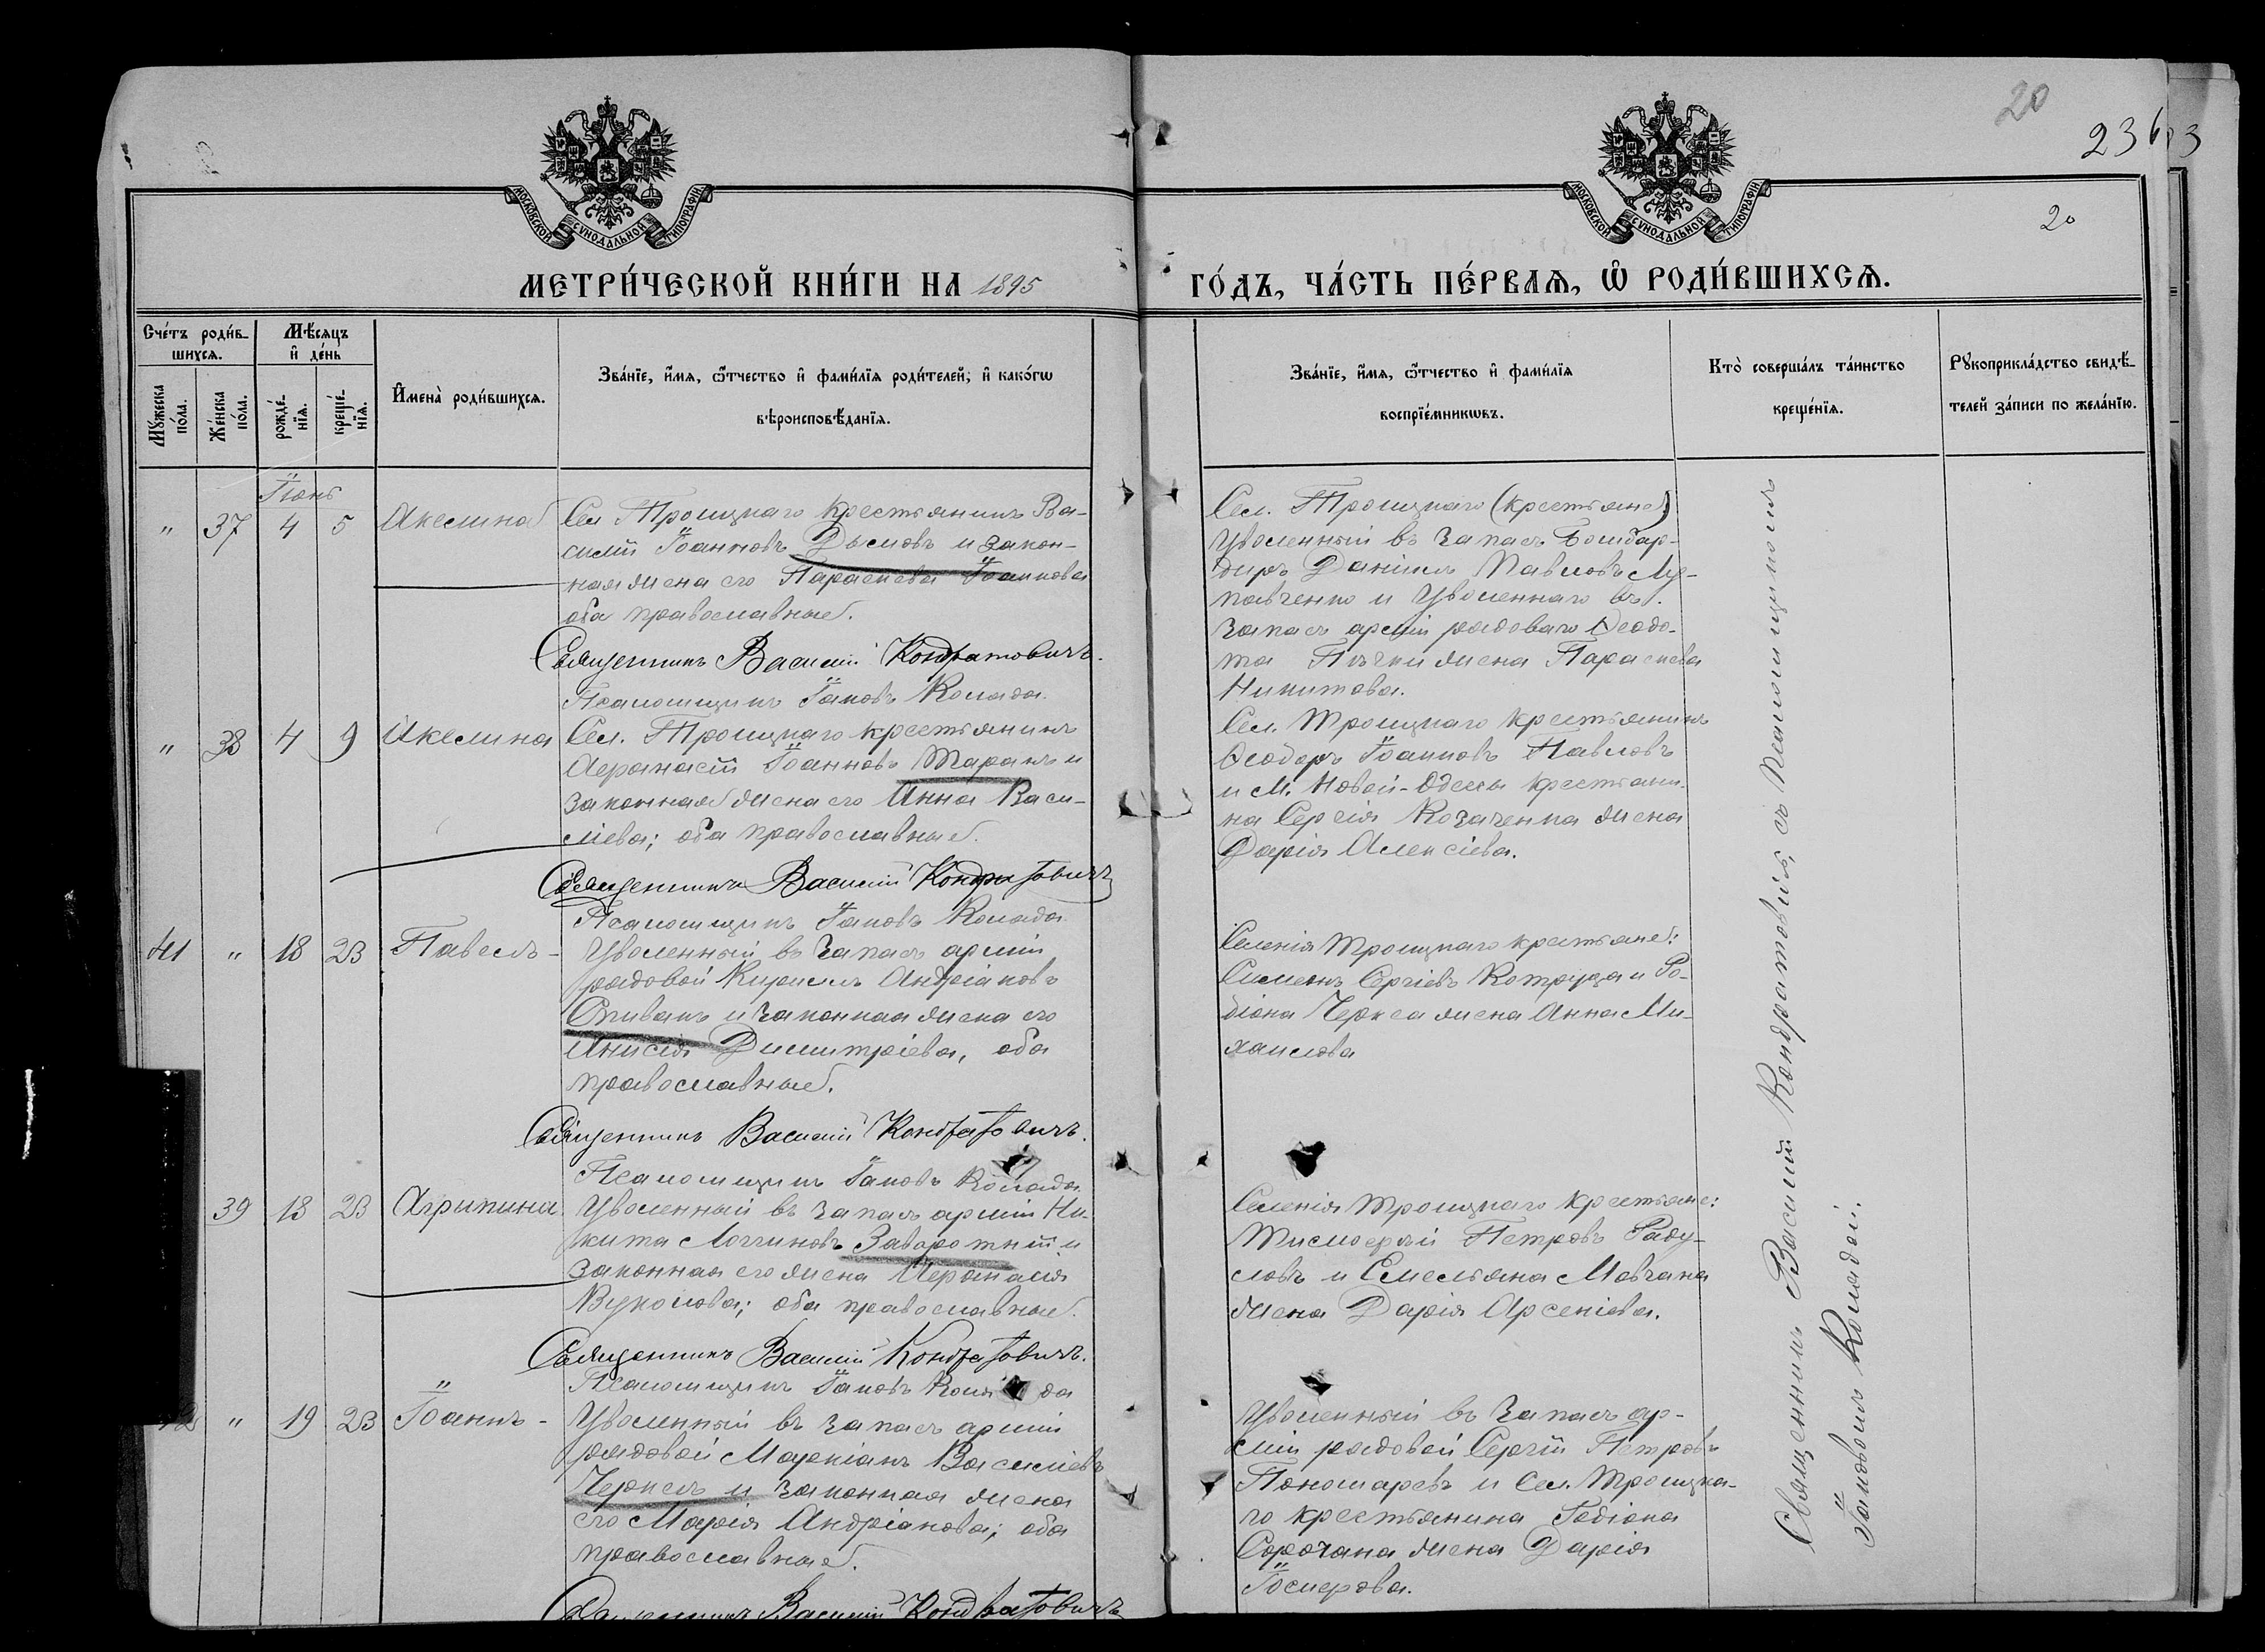 20
23
3
20
МОСКОВСКОЙ СУНОДАЛЬНОЙ ТИПОГРАФІИ
МОСКОВСКОЙ СУНОДАЛЬНОЙ ТИПОГРАФІИ
МЕТРИ́ЧЕСКОЙ КНИ́ГИ НА 1895 ГО́ДЪ, ЧА́СТЬ ПЕ́РВАѦ, Ѡ҆ РОДИ́ВШИХСѦ.
Сче́тъ роди́в-
шихсѧ.
Мꙋ́жеска
по́ла.
Же́нска
по́ла.
Мѣ́сѧцъ
и҆ де́нь
рожде́-
нїѧ.
креще́-
нїѧ.
И҆мена̀ роди́вшихсѧ.
Зва́нїе, и҆́мѧ, ѻ҆́тчество и҆ фами́лїѧ роди́телей; и҆ како́гѡ
вѣроисповѣ́данїѧ.
Зва́нїе, и҆́мѧ, ѻ҆́тчество и҆ фами́лїѧ
воспрїе́мникѡвъ.
Кто̀ соверша́лъ та́инство
креще́нїѧ.
Рꙋкоприкла́дство свидѣ́-
телей за́писи по жела́нїю.
Іюнь
" 37 4 5 Акелина
Сел Троицкаго крестьянинъ Ва-
силій Іоанновъ Дымовъ и закон-
ная жена его Параскева Іоаннова
оба православные.
Священникъ Василій Кондратовичъ.
Псаломщикъ Іаковъ Колада.
Сел. Троицкаго (крестьяне)
Уволенный въ запасъ Бомбар-
диръ Даніилъ Павловъ Лу-
павченко и Уволеннаго въ
запасъ арміи рядоваго Ѳеодо-
та жена Параскева
Никитова.
" 38 4 9 Акелина
Сел. Троицкаго крестьянинъ
Аѳанасій Іоанновъ Таранъ и
законная жена его Анна Васи-
лiева; оба православные.
Священникъ Василій Кондратовичъ
Псаломщикъ Іаковъ Колада
Сел. Троицкаго крестьянинъ
Ѳеодоръ Іоанновъ Павловъ
и М. Новой-Одессы крестьяни-
на Сергія Козаченка жена
Дарія Алексіева.
41 " 18 23 Павелъ -
Уволенный въ запасъ арміи
рядовой Кириллъ Андріановъ
Спивакъ и законная жена его
Анисія Димитріева, оба
православные.
Священникъ Василій Кондратовичъ.
Псаломщикъ Іаковъ Колада.
Селенія Троицкаго крестьяне:
Симеонъ Сергіевъ Котруца и Ро-
діона Черкеса жена Анна Ми-
хаилова
39 18 23 Агрипина
Уволенный въ запасъ арміи Ни-
кита Логгиновъ Заворотній и
законная его жена Аѳанасія
Вуколова; оба православные.
Священникъ Василій Кондратовичъ.
Псаломщикъ Іаковъ Колада
Селенія Троицкаго крестьяне:
Тимоѳей Петровъ Раду-
ловъ и Емельяна Мовчана
жена Дарія Арсеніева.
" 19 23 Іоаннъ -
Уволенный въ запасъ арміи
рядовой Маркіанъ Васильевъ
Черкесъ и законная жена
его Марія Андріанова; оба
православные.
Священникъ Василій Кондратовичъ
Уволенный въ запасъ ар-
міи рядовой Сергій Петровъ
Пономаревъ и Сел. Троицка-
го крестьянина Родіона
Сорочана жена Дарія
Іосифова.
Священникъ Василій Кондратовичъ, съ псаломщикомъ
Іаковомъ Коладой.